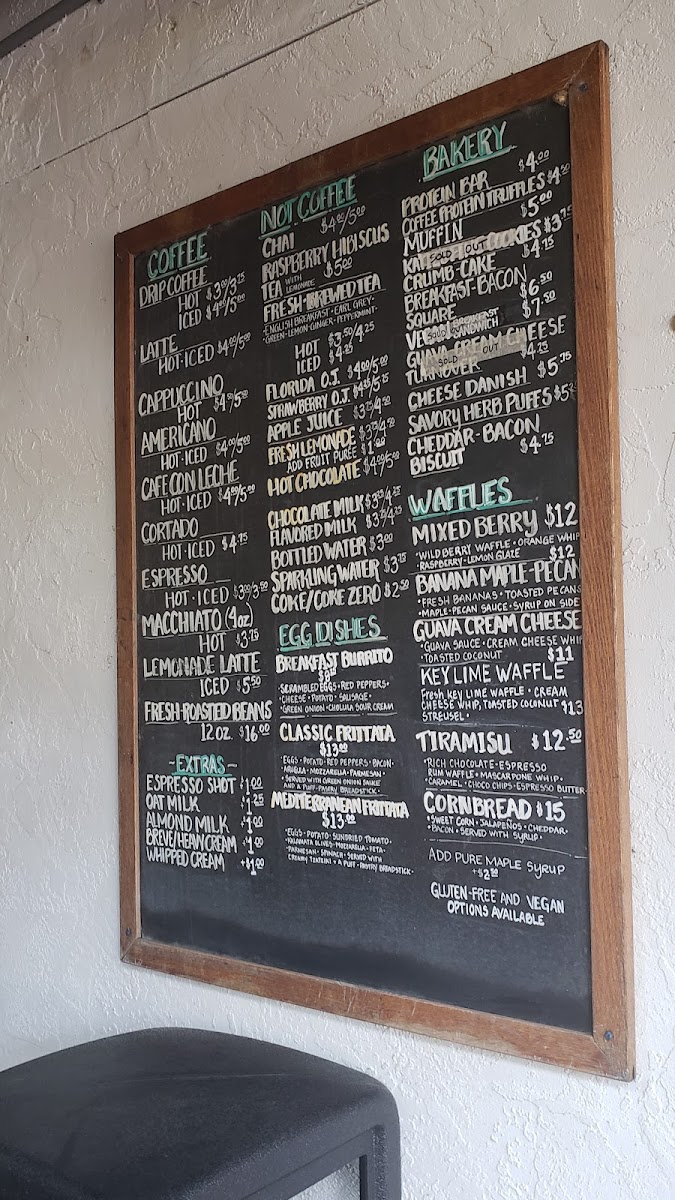 COFFEE
DRIP COFFEE
HOT $3.00/3.75
ICED $4.00/5.00
LATTE
HOT·ICED $4.00/5.00
CAPPUCCINO
HOT
AMERICANO
HOT·ICED $4.00/5.00
CAFE CON LECHE
HOT·ICED $4.00/5.00
CORTADO
HOT·ICED $4.75
ESPRESSO
HOT·ICED $3.00/3.50
MACCHIATO (4oz)
HOT $3.75
LEMONADE LATTE
ICED $5.50
FRESH·ROASTED BEANS
12 OZ. $16.00
-EXTRAS-
ESPRESSO SHOT $1.00
OAT MILK $1.25
ALMOND MILK $1.00
BREVE/HEAVY CREAM $1.00
WHIPPED CREAM +$1.00
NOT COFFEE
CHAI $4.00/5.00
RASPBERRY HIBISCUS
TEA WITH LEMONADE $5.00
FRESH-BREWED TEA
·ENGLISH BREAKFAST·EARL GREY·
·GREEN·LEMON-GINGER·PEPPERMINT·
HOT $3.50/4.25
ICED $4.25
FLORIDA O.J. $4.00/5.00
STRAWBERRY O.J.
APPLE JUICE
FRESH LEMONADE
ADD FRUIT PUREE $1.00
HOT CHOCOLATE $4.00/5.00
CHOCOLATE MILK
FLAVORED MILK
BOTTLED WATER $3.00
SPARKLING WATER $3.75
COKE/COKE ZERO $2.50
EGG DISHES
BREAKFAST BURRITO
·SCRAMBLED EGGS·RED PEPPERS·
·CHEESE·POTATO·SAUSAGE·
·GREEN ONION·CHOLULA SOUR CREAM
CLASSIC FRITTATA
$13.00
·EGGS·POTATO·RED PEPPERS·BACON·
·ARUGULA·MOZZARELLA·PARMESAN·
·SERVED WITH GREEN ONION SAUCE
AND A PUFF-PASTRY BREADSTICK·
MEDITERRANEAN FRITTATA
$13.00
·EGGS·POTATO·SUNDRIED TOMATO·
·KALAMATA OLIVES·MOZZARELLA·FETA·
·PARMESAN·SPINACH·SERVED WITH
CREAMY TZATZIKI & A PUFF-PASTRY BREADSTICK·
BAKERY
PROTEIN BAR $4.00
COFFEE PROTEIN TRUFFLES $4.50
MUFFIN $5.00
SOLD OUT COOKIES $3.75
CRUMB-CAKE $4.75
BREAKFAST-BACON
SQUARE $6.50
BREAKFAST
SANDWICH $7.50
GUAVA CREAM CHEESE
TURNOVER SOLD OUT $4.75
CHEESE DANISH $5.75
SAVORY HERB PUFFS
CHEDDAR-BACON
BISCUIT $4.75
WAFFLES
MIXED BERRY $12
·WILD BERRY WAFFLE·ORANGE WHIP
RASPBERRY-LEMON GLAZE $12
BANANA MAPLE-PECAN
·FRESH BANANAS·TOASTED PECANS
·MAPLE-PECAN SAUCE·SYRUP ON SIDE
GUAVA CREAM CHEESE
·GUAVA SAUCE·CREAM CHEESE WHIP
·TOASTED COCONUT $11
KEY LIME WAFFLE
Fresh key LIME WAFFLE·CREAM
CHEESE WHIP, TOASTED COCONUT $13
STREUSEL·
TIRAMISU $12.50
·RICH CHOCOLATE-ESPRESSO
RUM WAFFLE·MASCARPONE WHIP·
·CARAMEL·CHOCO CHIPS·ESPRESSO BUTTER
CORNBREAD $15
·SWEET CORN·JALAPEÑOS·CHEDDAR·
·BACON·SERVED WITH SYRUP·
ADD PURE MAPLE SYRUP
GLUTEN-FREE AND VEGAN
OPTIONS AVAILABLE